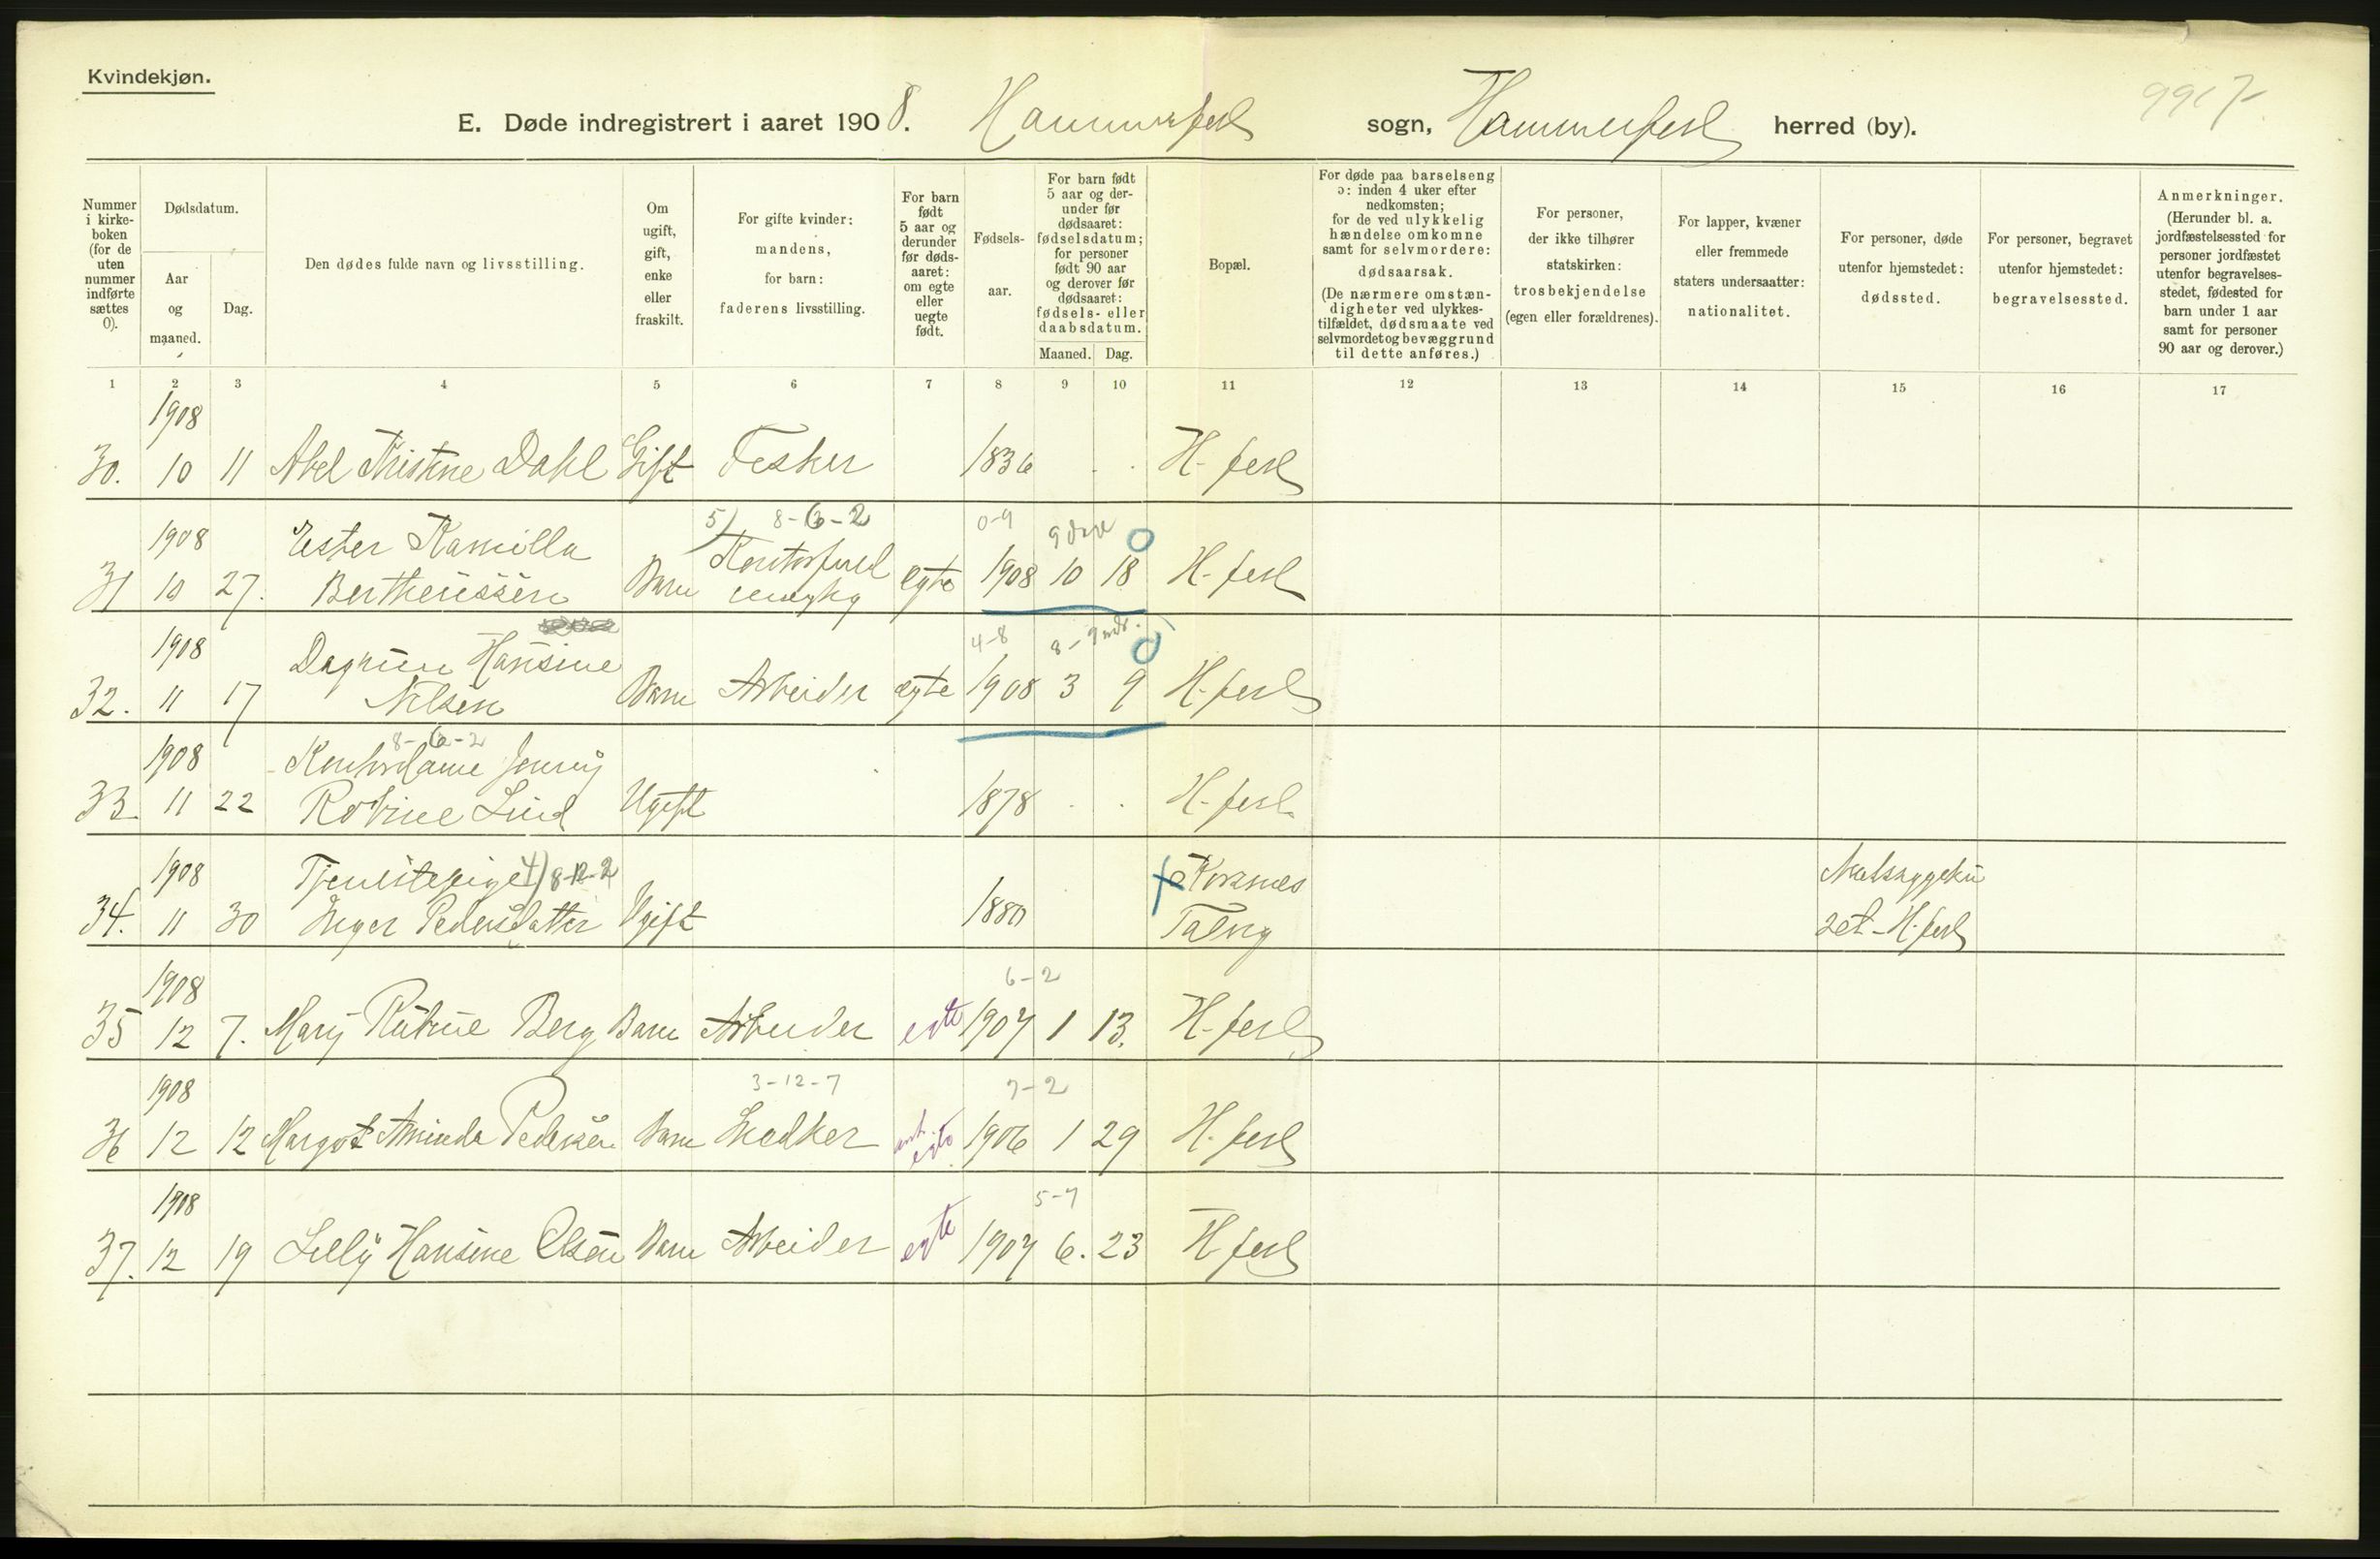 Kvindekjøn.
E. Døde indregistrert i aaret 1908. Hammerfest sogn, Hammerfest herred (by).
Nummer i kirke-boken (for de uten nummer indførte sættes 0).
Dødsdatum.
Aar og maaned.
Dag.
Den dødes fulde navn og livsstilling.
Om ugift, gift, enke eller fraskilt.
For gifte kvinder: mandens, for barn: faderens livsstilling.
For barn født 5 aar og derunder før døds-aaret: om egte eller uegte født.
Fødsels-aar.
For barn født 5 aar og der-under før dødsaaret: fødselsdatum; for personer født 90 aar og derover før dødsaaret: fødsels- eller daabsdatum.
Maaned. Dag.
Bopæl.
For døde paa barselseng ɔ: inden 4 uker efter nedkomsten; for de ved ulykkelig hændelse omkomne samt for selvmordere: dødsaarsak. (De nærmere omstæn-digheter ved ulykkes-tilfældet, dødsmaate ved selvmordet og bevæggrund til dette anføres.)
For personer, der ikke tilhører statskirken: trosbekjendelse (egen eller forældrenes).
For lapper, kvæner eller fremmede staters undersaatter: nationalitet.
For personer, døde utenfor hjemstedet: dødssted.
For personer, begravet utenfor hjemstedet: begravelsessted.
Anmerkninger. (Herunder bl. a. jordfæstelsessted for personer jordfæstet utenfor begravelses-stedet, fødested for barn under 1 aar samt for personer 90 aar og derover.)
1 2 3 4 5 6 7 8 9 10 11 12 13 14 15 16 17
1908
30. 10 11 Abel Kristine Dahl Gift Fisker 1836 H-fest
5) 8-6-2 0-9 9 dage
1908 Ester Kamilla
31 10 27. Bertheussen Barn egte 1908 10 18 H-fest
4-8 8-9 mdr.
1908 Dagrun Hansine
32. 11 17 Nilsen Barn Arbeider egte 1908 3 9 H-fest
8-6-2
1908 Kontordame Jenny
33. 11 22 Rovine Lind Ugift 1878 H-fest
1908 Tjenestepige 4) 8-12-2 Korsnes
34. 11 30 Inger Pedersdatter Ugift 1880 Talvig H.fest
1908 6-2
35 12 7. Mary Berg Barn Arbeider egte 1907 1 13. H-fest
1908 3-12-7 7-2
36 12 12 Margot Aminda Pedersen Barn Snedker egte 1906 1 29 H-fest
1908 5-7
37. 12 19 Lelly Hansine Olsen Barn Arbeider egte 1907 6. 23 H-fest